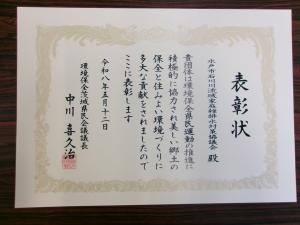 表彰状
水戸市石川川流域家庭雑排水対策協議会 殿
貴団体は環境保全県民運動の推進に
積極的に協力され美しい郷土の
保全と住みよい環境づくりに
多大な貢献をされましたので
ここに表彰します
令和八年五月十二日
環境保全茨城県民会議議長
中川 喜久治